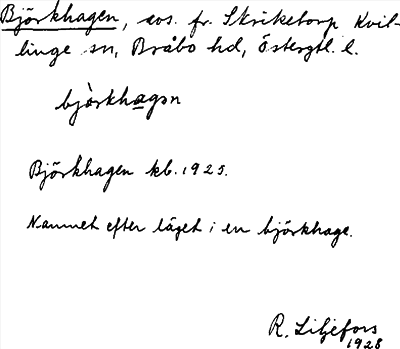 Björkhagen, avs. fr. Skriketorp Kvil-
linge sn, Bråbo hd, Östergtl. l.
bjòrkhagən
Björkhagen kb. 1925.
Namnet efter läget i en björkhage.
R. Liljefors
1928